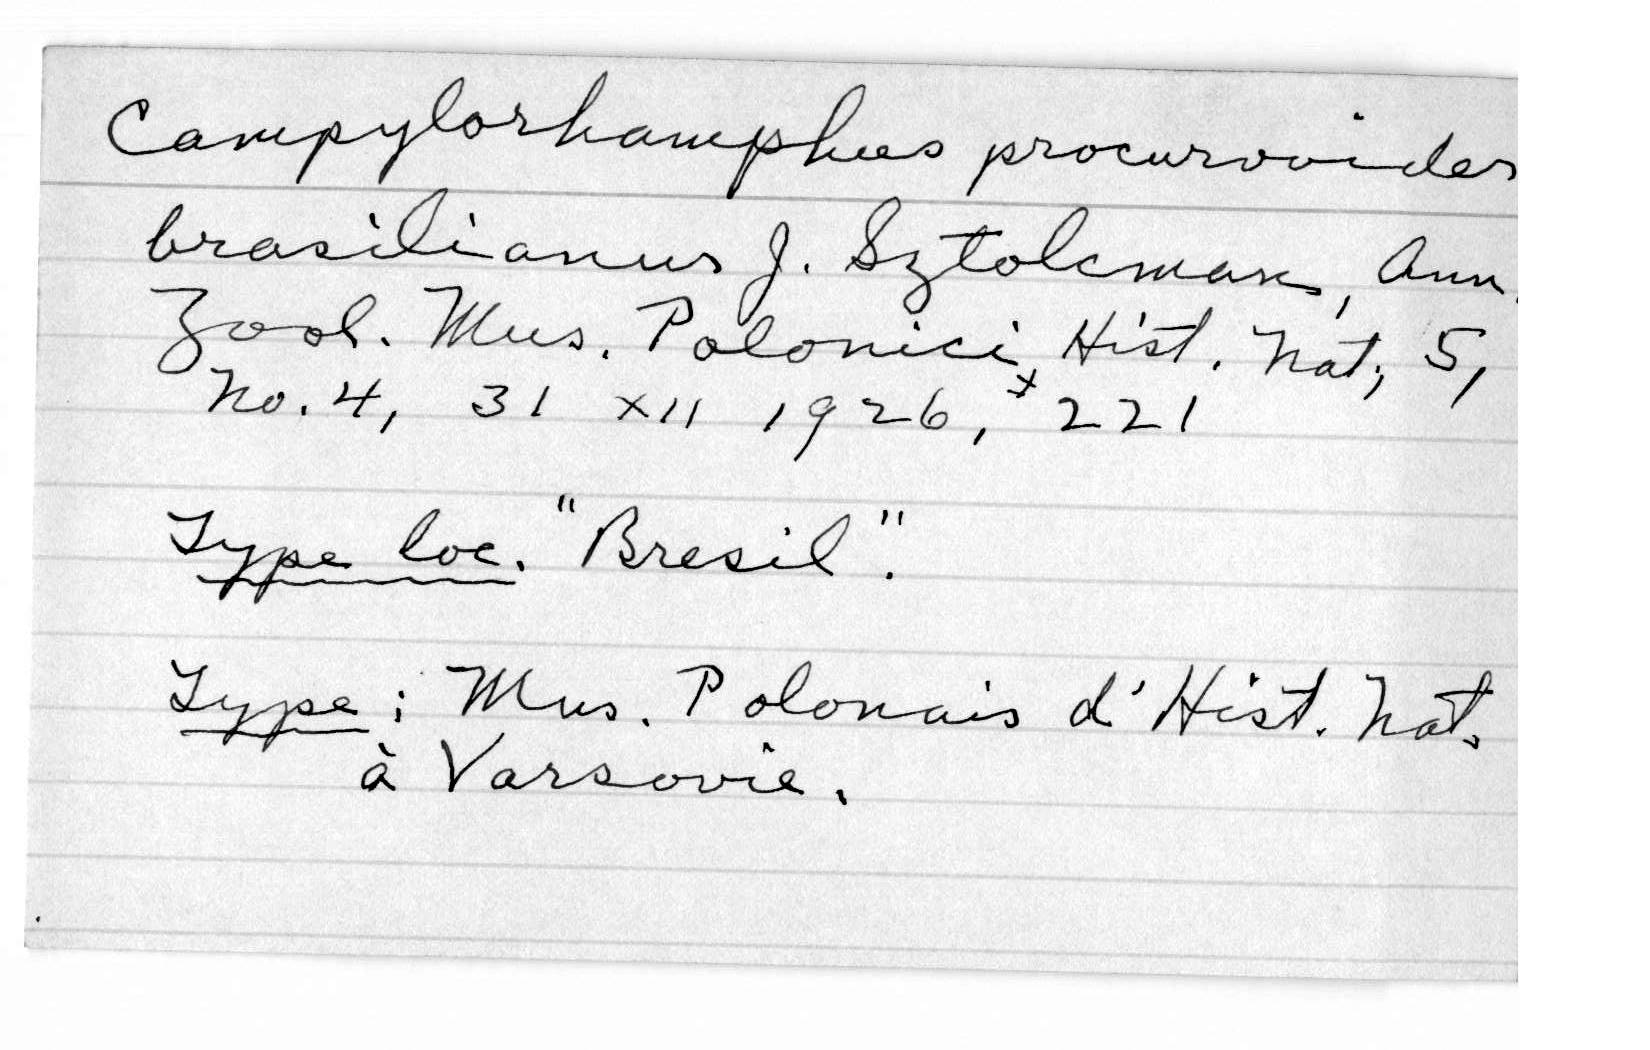 Campylorhamphus procurvoides
brasilianus J. Sztolcman, Ann.
Zool. Mus. Polonici Hist. Nat., 5,
No. 4, 31 XII 1926, * 221
Type loc. "Bresil".
Type: Mus. Polonais d'Hist. Nat.
à Varsovie.